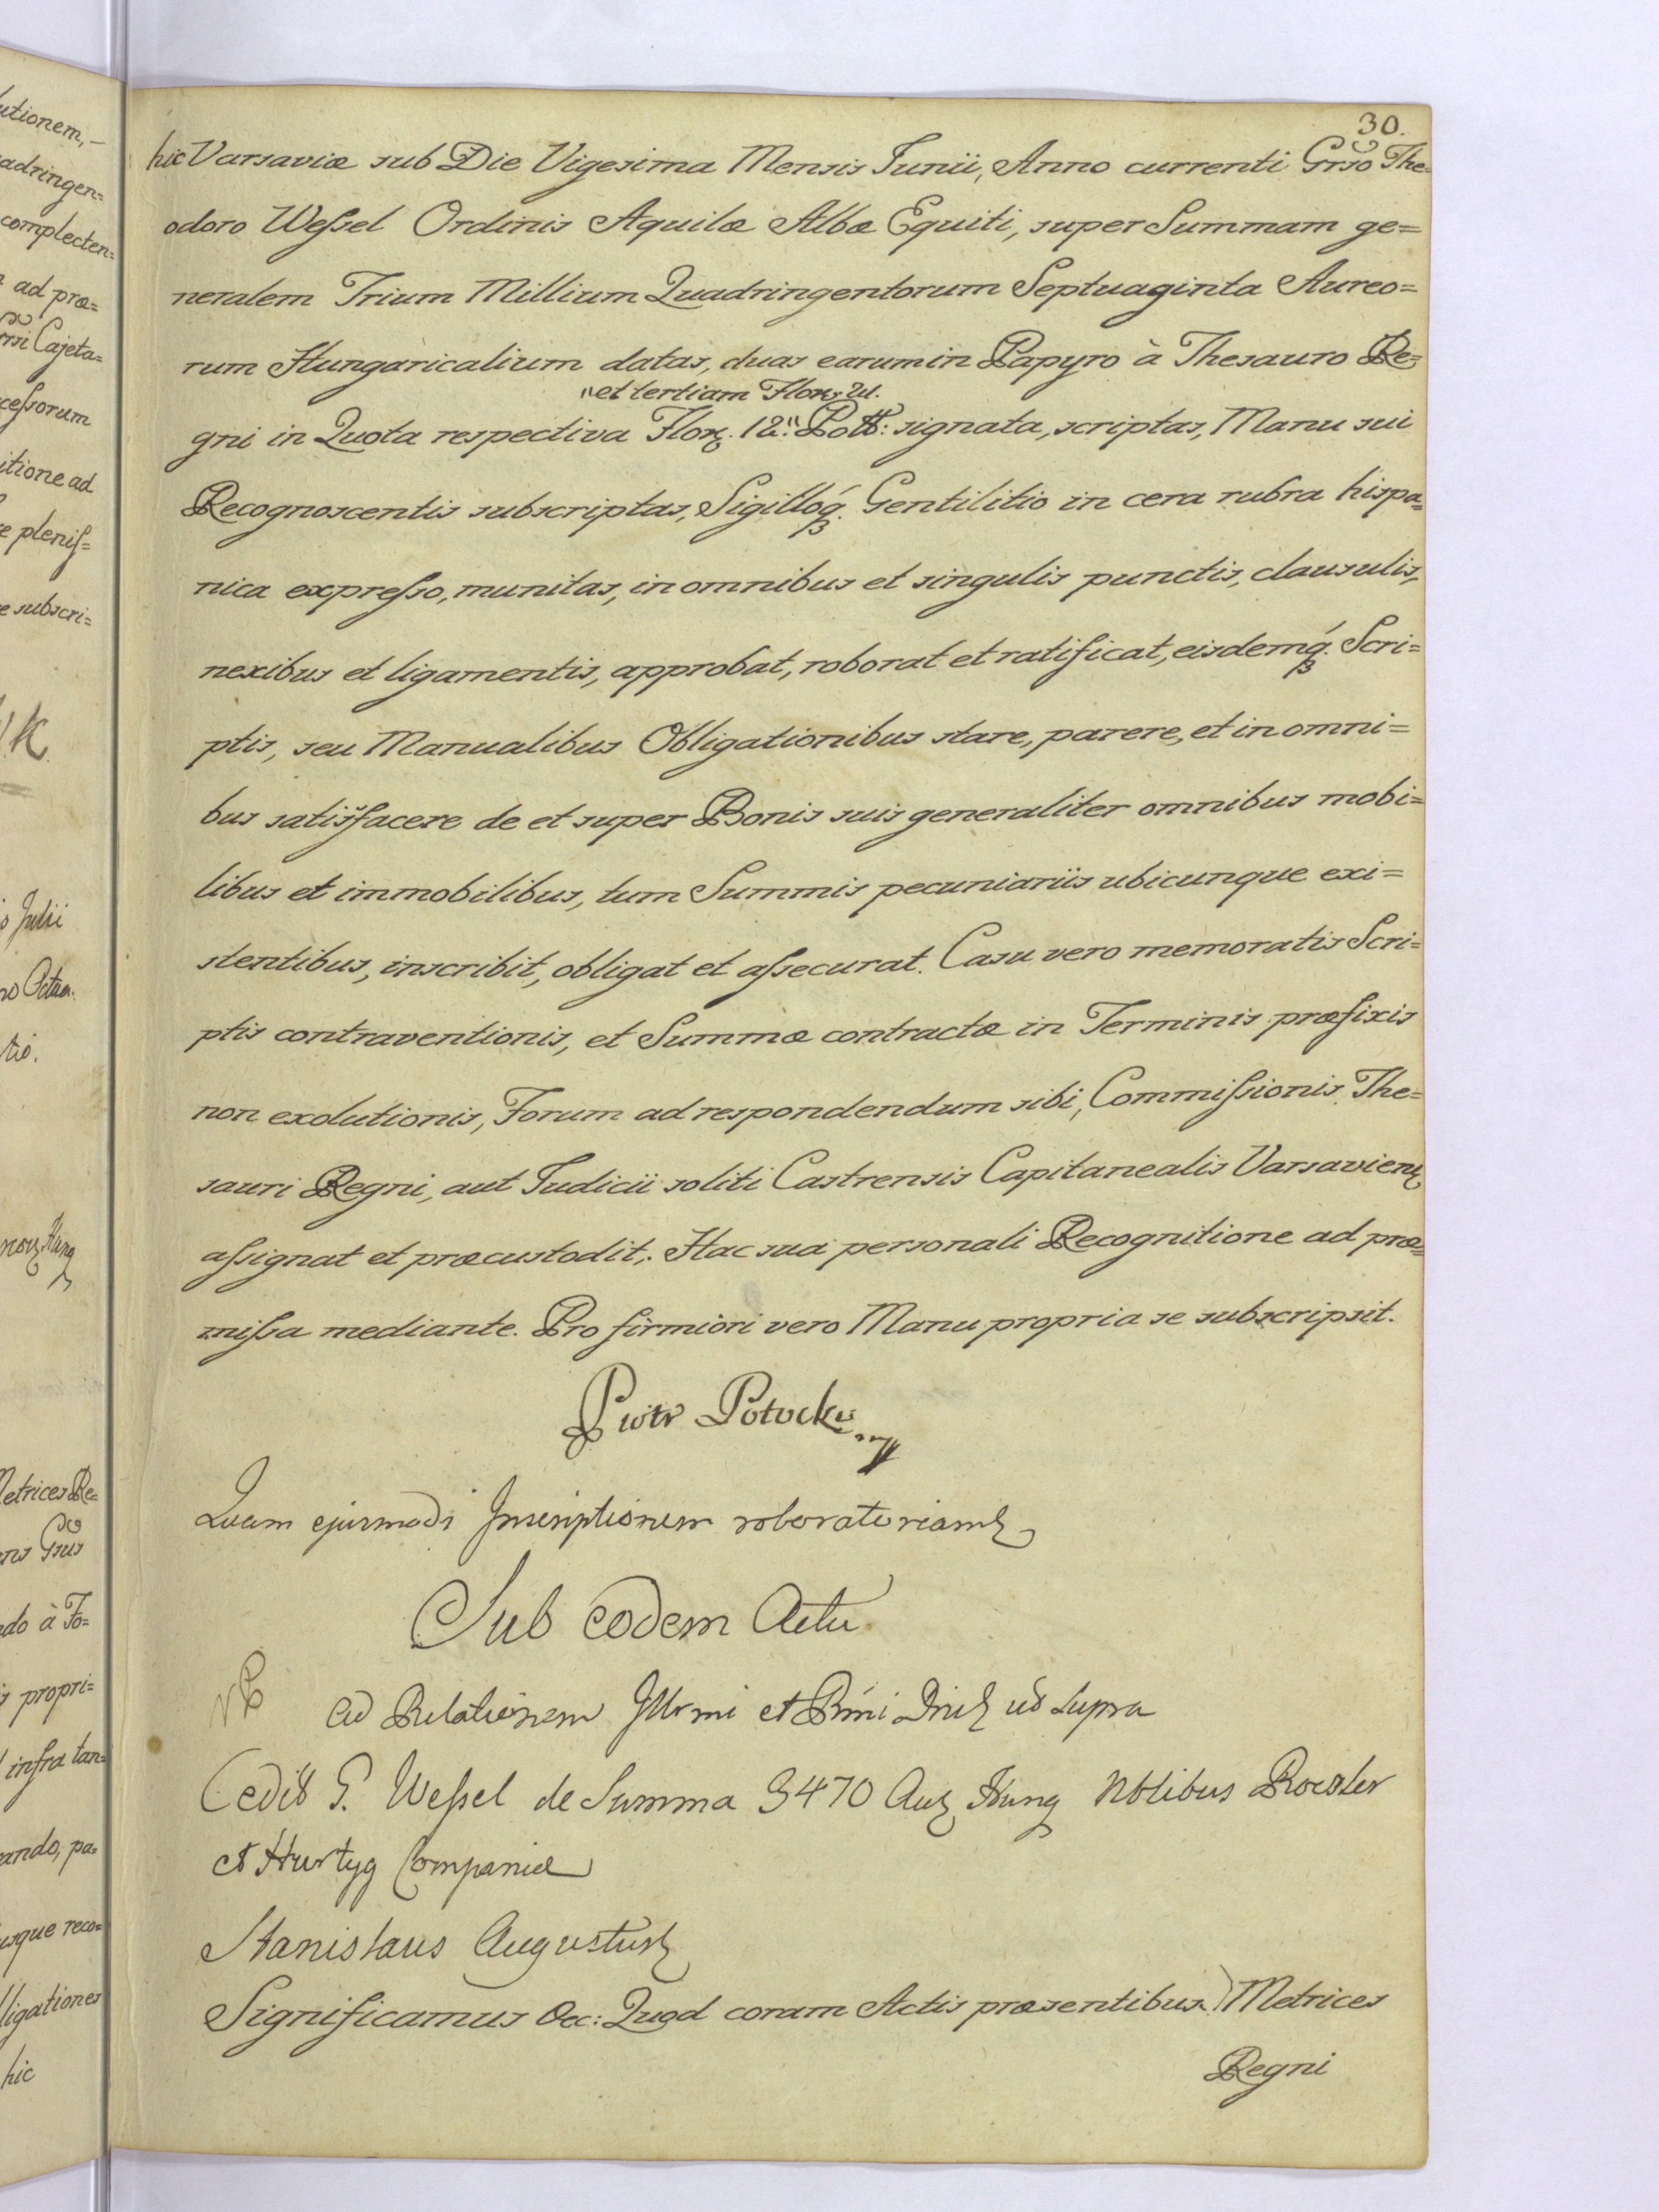 30.
hic Varsaviæ sub Die Vigesima Mensis Junii, Anno currenti Grso The=
odoro Weſsel Ordinis Aquilæ Albæ Equiti, super Summam ge=
neralem Trium Millium Quadringentorum Septuaginta Aureo=
rum Hungaricalium datas, duas earum in Papyro à Thesauro Re=
"et tertiam Flor:
gni in Quota respectiva Flor. 12." Poltt: signata, scriptas, Manu sui
Recognoscentis subscriptas, Sigilloq́. Gentilitio in cera rubra hispa=
nica expreſso, munitas, in omnibus et singulis punctis, clausulis,
nexibus et ligamentis, approbat, roborat et ratificat, eisdemq́. Scri=
ptis, seu Manualibus Obligationibus stare, parere, et in omni=
bus satisfacere de et super Bonis suis generaliter omnibus mobi=
libus et immobilibus, tum Summis pecuniariis ubicunque exi=
stentibus, inscribit, obligat et aſsecurat. Casu vero memoratis Scri=
ptis contraventionis, et Summæ contractæ in Terminis præfixis
non exolutionis, Forum ad respondendum sibi, Commiſsionis The=
sauri Regni, aut Judicii soliti Castrensis Capitanealis Varsavien
aſsignat et præcustodit,. Hac sua personali Recognitione ad præ=
miſsa mediante. Pro firmiori vero Manu propria se subscripsit.
Piotr Potocki
Quam ejusmodi Inscriptionem roboratoriam
Sub eodem Actu
Ad Relationem Illrmi et Rmi ut supra
Cedit G. Weſsel de Summa 3470 Aur Hung Nblibus Roesler
et Hurtyg Compania
Stanislaus Augustus
Significamus &c: Quod coram Actis præsentibus) Metrices
Regni
utionem,
adringen=
complecten=
ad præ=
Cajeta=
ceſsorum
itione ad
e pleniſ=
e subscri=
Julii
Metrices Re=
Gsus
do à Fo=
s propri=
infra tan=
ando, pa=
usque reco=
ligationes
hic